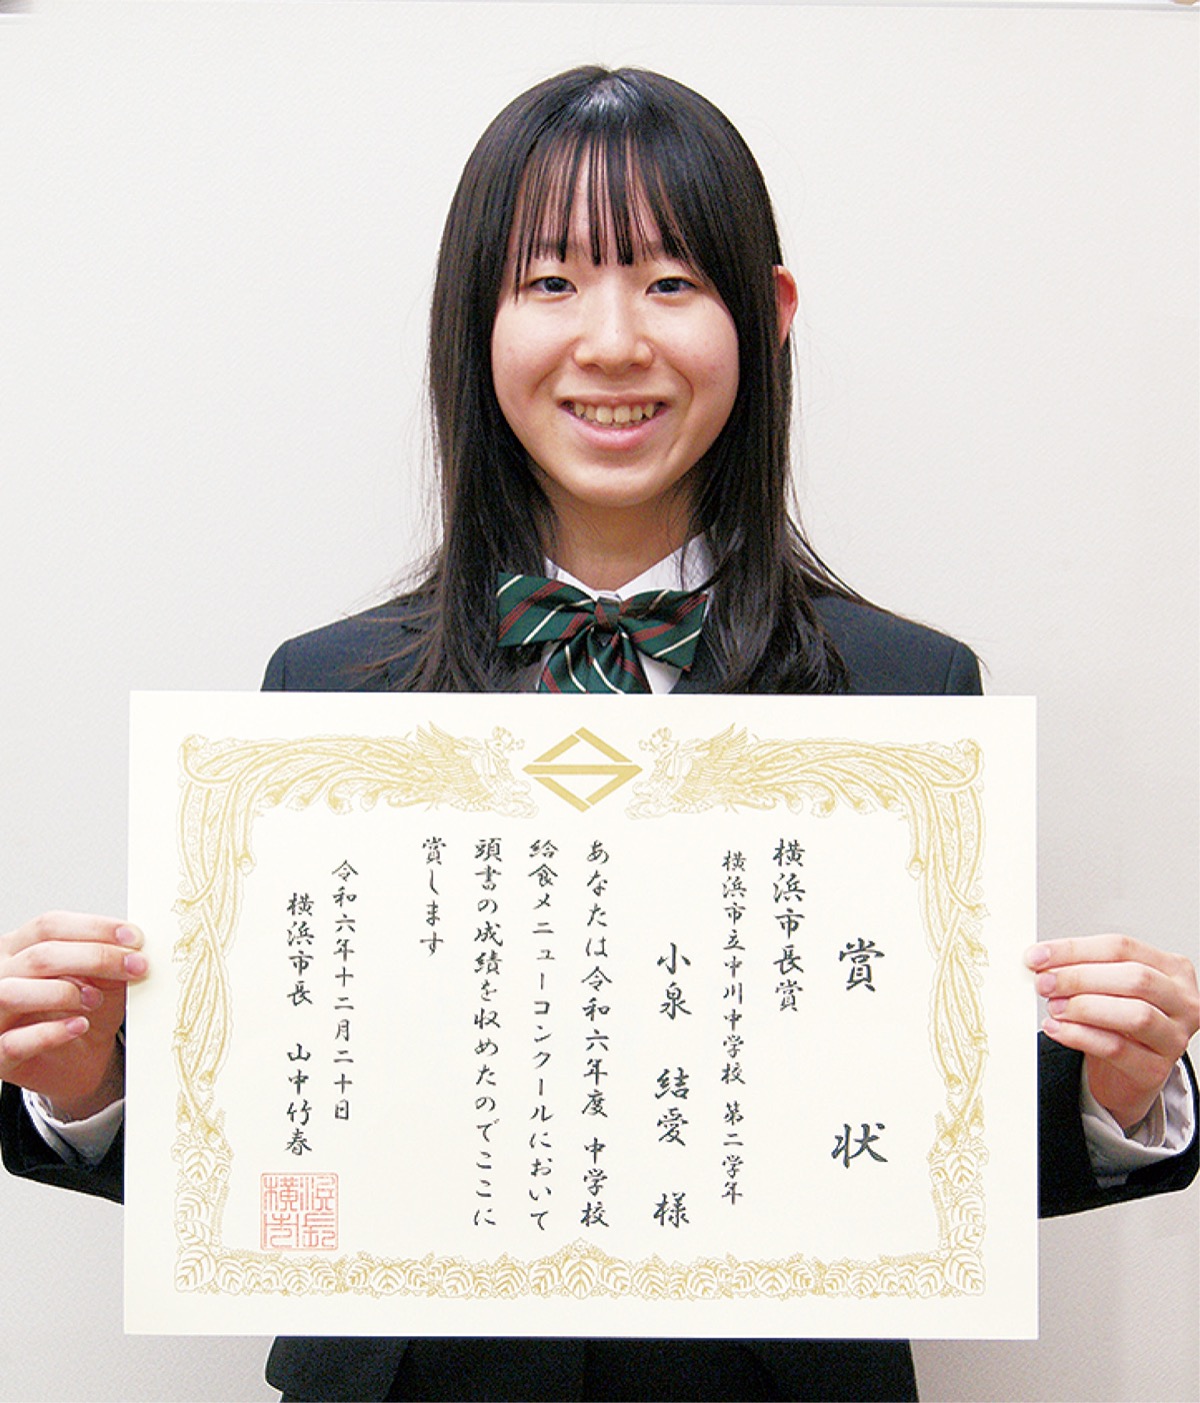 賞状
横浜市長賞
横浜市立中川中学校 第二学年
小泉 結愛 様
あなたは令和六年度 中学校
給食メニューコンクールにおいて
頭書の成績を収めたのでここに
賞します
令和六年十二月二十日
横浜市長 山中竹春